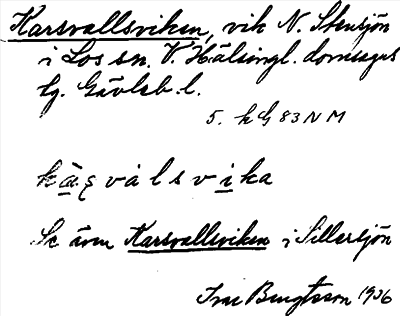 Karsvallsviken, vik N. Stensjön
i Los sn. V. Hälsingl. domsagas
tg. Gävleb. l.
5. h G 83 N M
k à ̣ş v å l s v i k a
Se även Karsvallsviken i Sillersjön
Ivar Bengtsson 1936